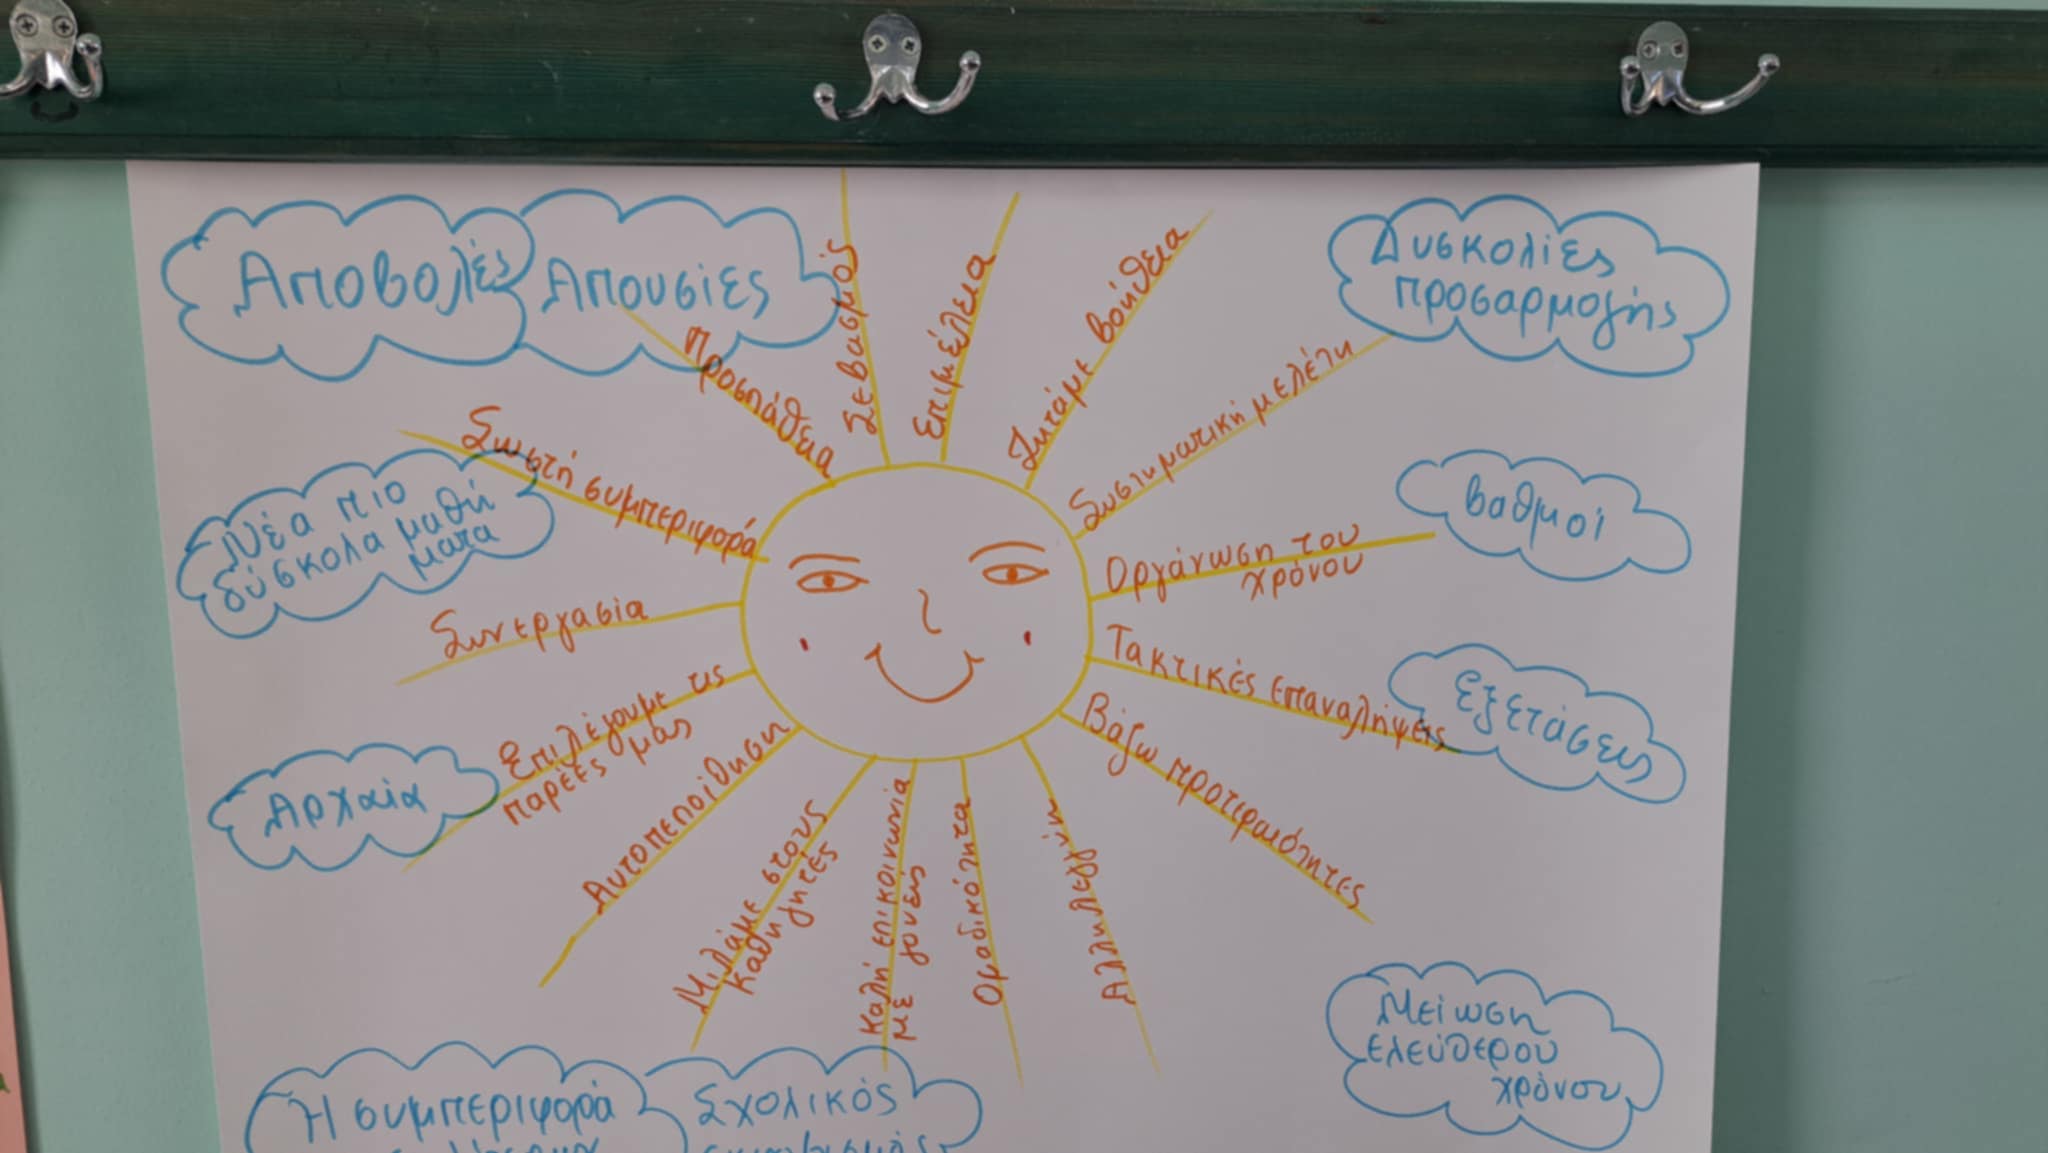 Αποβολές
Απουσίες
Δυσκολίες
προσαρμογής
Σεβασμός
Επιμέλεια
Ζητάμε βοήθεια
Προσπάθεια
Συστηματική μελέτη
Σωστή συμπεριφορά
Νέα πιο
δύσκολα μαθή
ματα
Βαθμοί
Οργάνωση του
χρόνου
Συνεργασία
Τακτικές επαναλήψεις
Εξετάσεις
Επιλέγουμε τις
παρέες μας
Αρχαία
Βάζω προτεραιότητες
Αυτοπεποίθηση
Μιλάμε στους
καθηγητές
Καλή επικοινωνία
με γονείς
Ομαδικότητα
Αλληλεγγύη
Μείωση
ελεύθερου
χρόνου
Η συμπεριφορά
Σχολικός